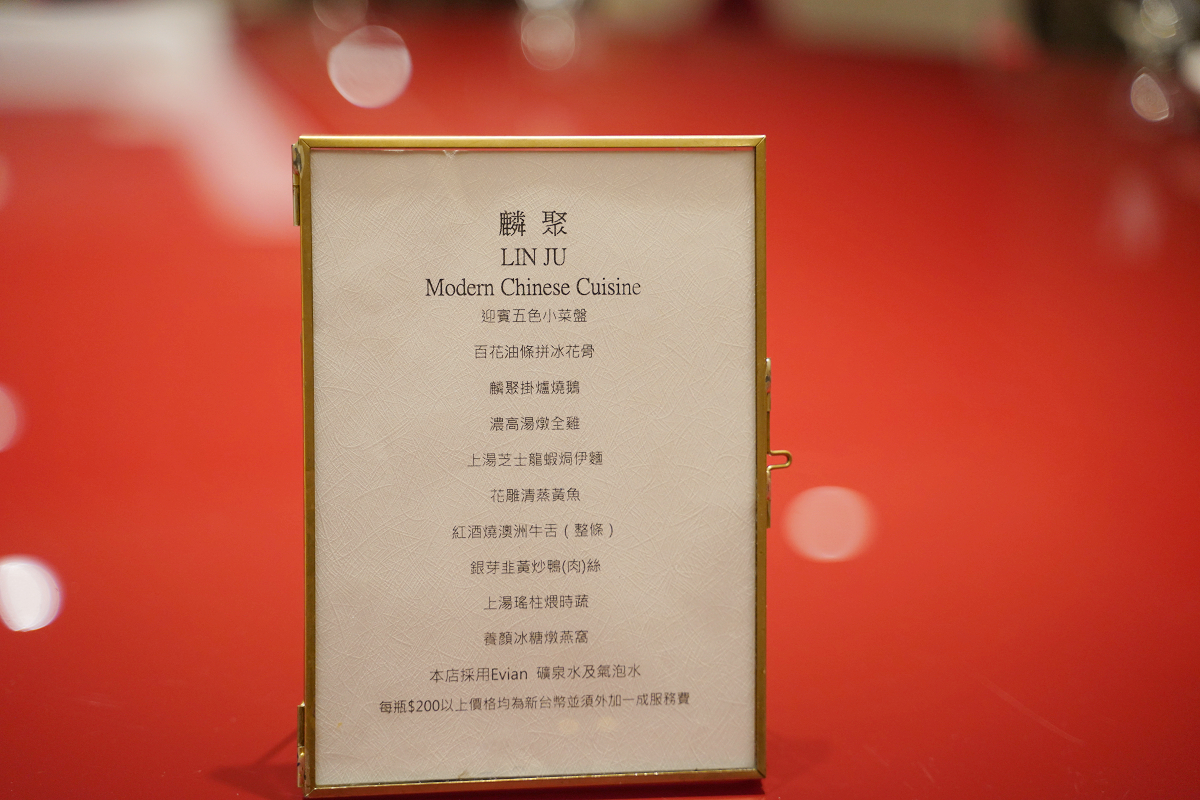 麟聚
LIN JU
Modern Chinese Cuisine
迎賓五色小菜盤
百花油條拼冰花骨
麟聚掛爐燒鵝
濃高湯燉全雞
上湯芝士龍蝦焗伊麵
花雕清蒸黃魚
紅酒燒澳洲牛舌（整條）
銀芽韭黃炒鴨(肉)絲
上湯瑤柱煨時蔬
養顏冰糖燉燕窩
本店採用Evian 礦泉水及氣泡水
每瓶$200以上價格均為新台幣並須外加一成服務費